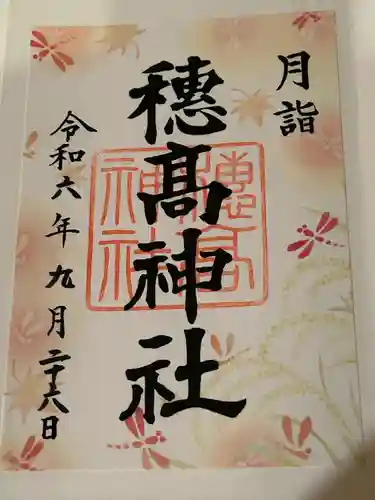 月詣
穂高神社
令和六年九月二十六日
穂高
神社